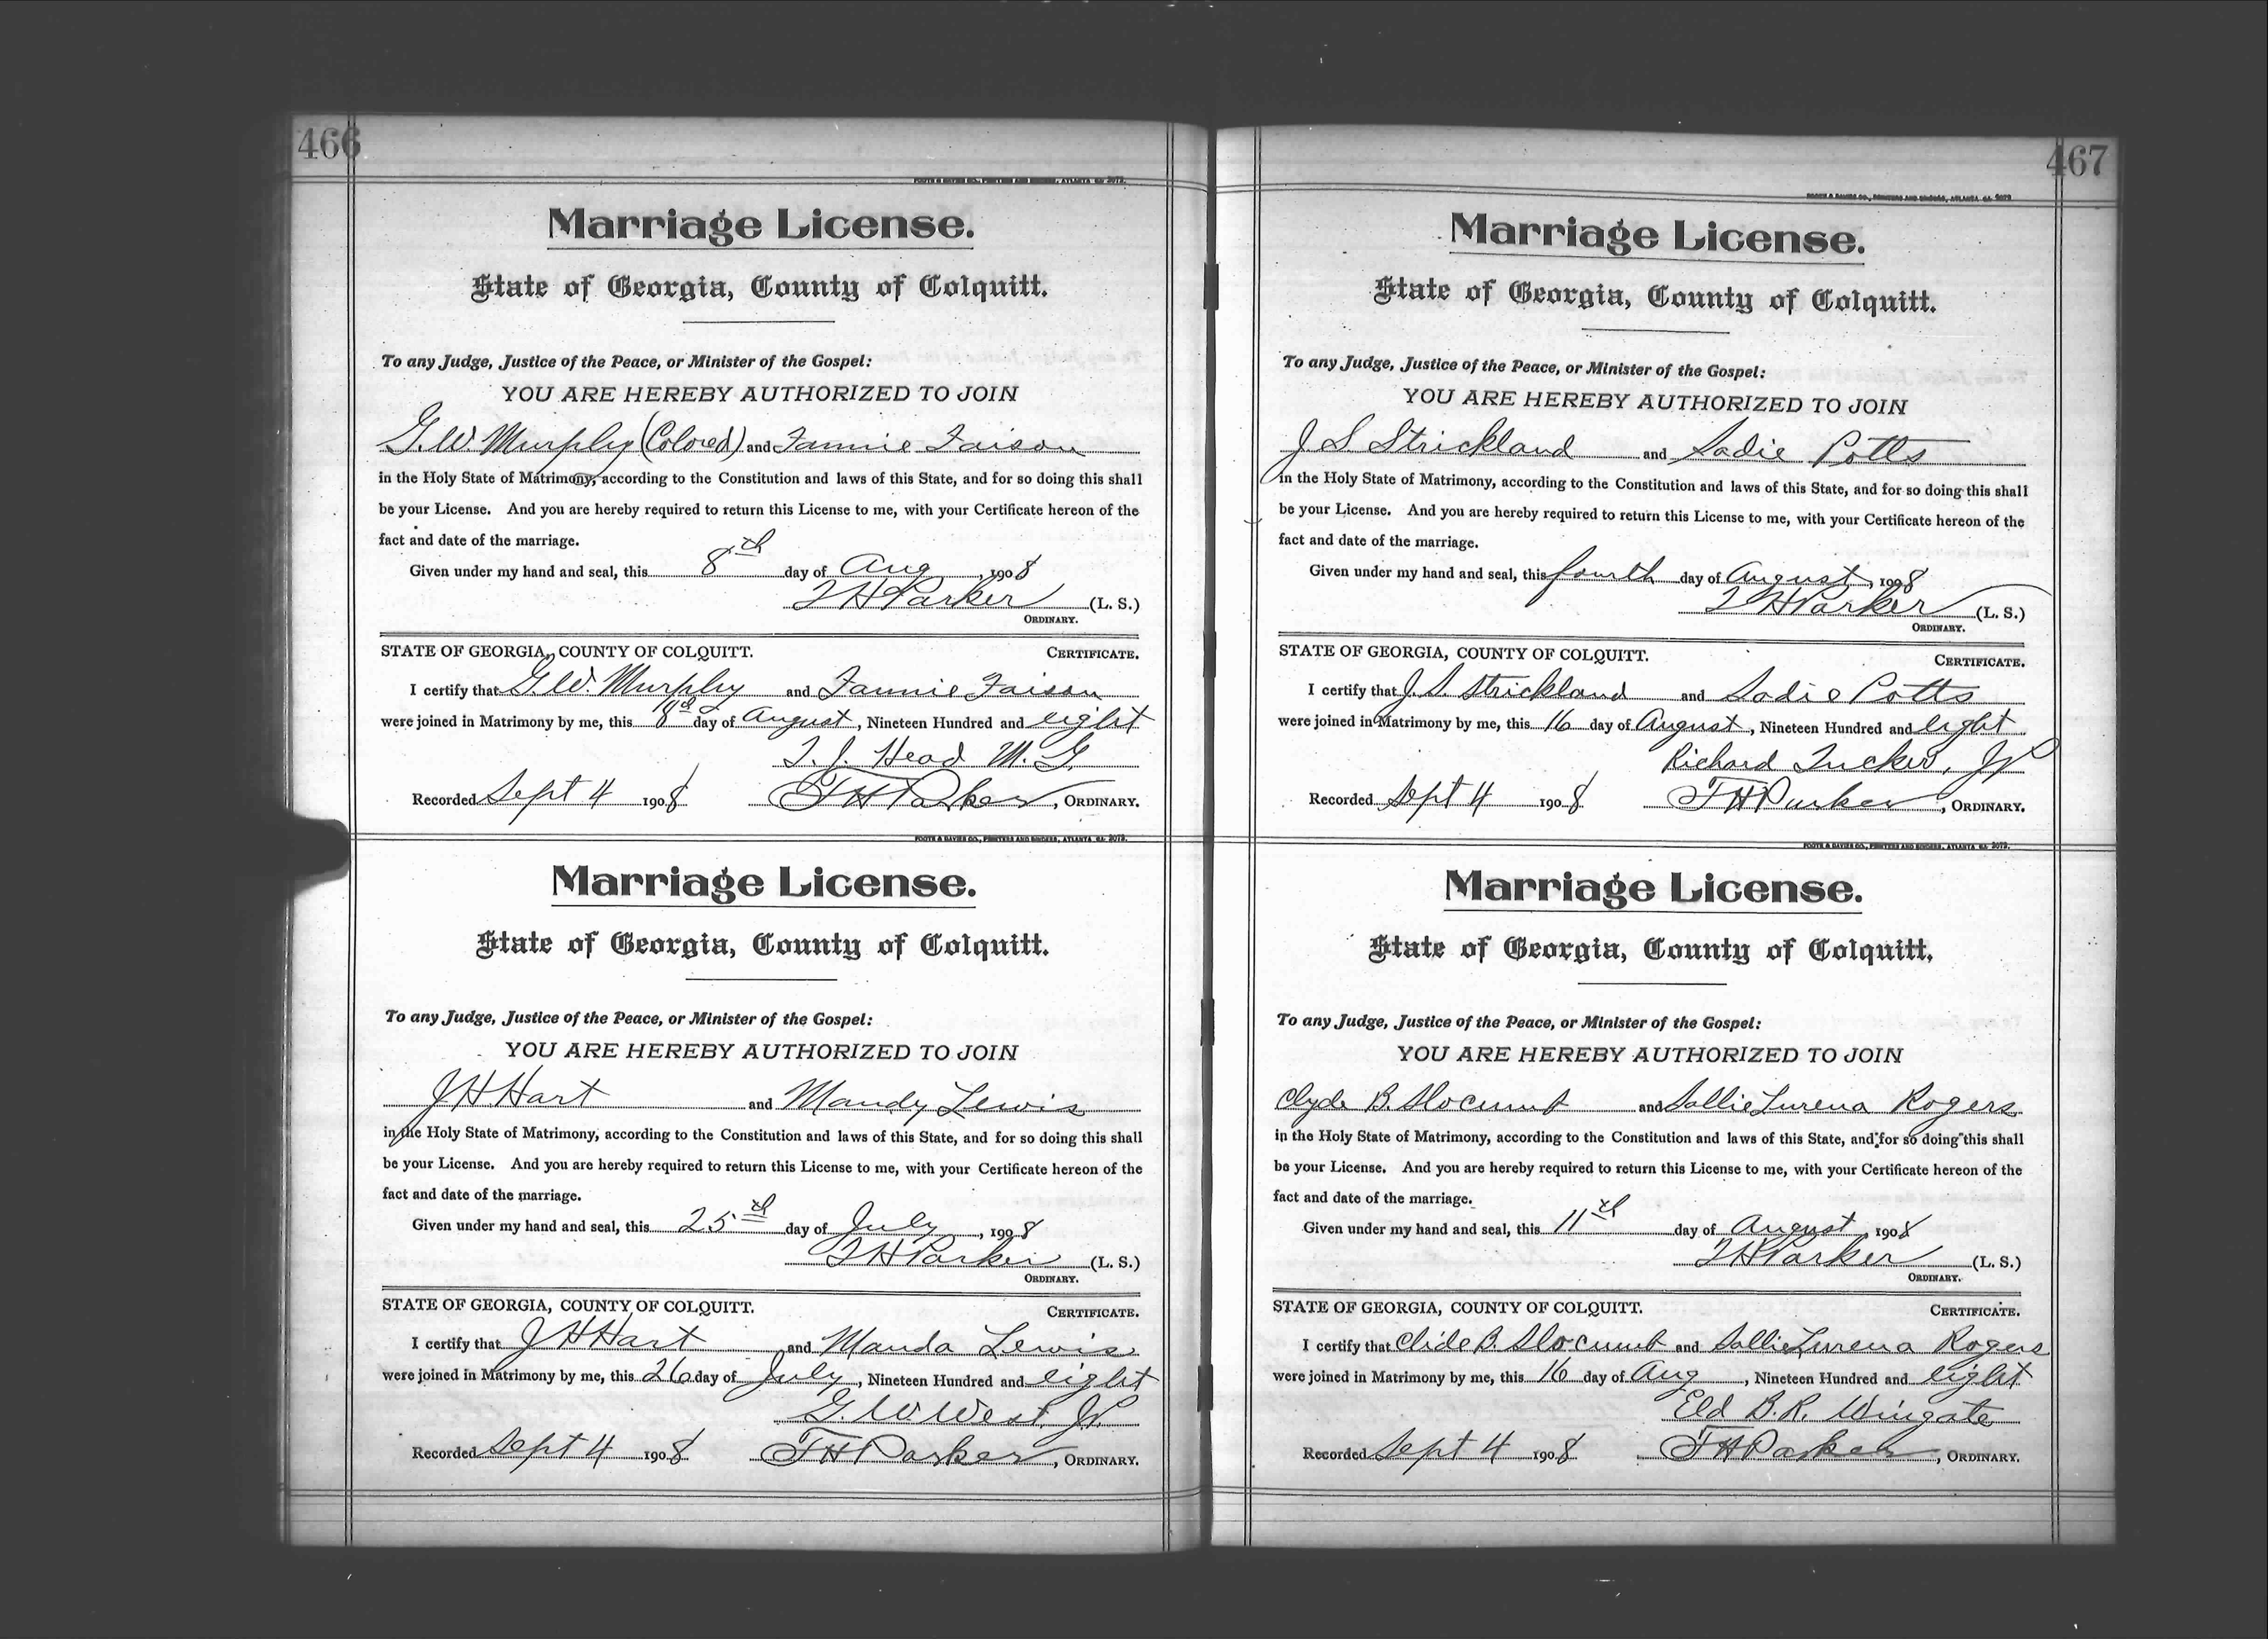 466
FOOTE & DAVIES CO., PRINTERS AND BINDERS, ATLANTA, GA. 2072.
Marriage License.
State of Georgia, County of Colquitt.
To any Judge, Justice of the Peace, or Minister of the Gospel:
YOU ARE HEREBY AUTHORIZED TO JOIN
G.W. Murphy (Colored) and Fannie Faison
in the Holy State of Matrimony, according to the Constitution and laws of this State, and for so doing this shall
be your License. And you are hereby required to return this License to me, with your Certificate hereon of the
fact and date of the marriage.
Given under my hand and seal, this 8th day of Aug, 1908
T H Parker (L. S.)
ORDINARY.
STATE OF GEORGIA, COUNTY OF COLQUITT. CERTIFICATE.
I certify that G.W. Murphy and Fannie Faison
were joined in Matrimony by me, this day of August, Nineteen Hundred and eight
T. J. Head M. G.
Recorded Sept 4 1908 T H Parker, ORDINARY.
FOOTE & DAVIES CO., PRINTERS AND BINDERS, ATLANTA, GA. 2072.
Marriage License.
State of Georgia, County of Colquitt.
To any Judge, Justice of the Peace, or Minister of the Gospel:
YOU ARE HEREBY AUTHORIZED TO JOIN
J H Hart and Mandy Lewis
in the Holy State of Matrimony, according to the Constitution and laws of this State, and for so doing this shall
be your License. And you are hereby required to return this License to me, with your Certificate hereon of the
fact and date of the marriage.
Given under my hand and seal, this 25th day of July, 1908
T H Parker (L. S.)
ORDINARY.
STATE OF GEORGIA, COUNTY OF COLQUITT. CERTIFICATE.
I certify that J H Hart and Manda Lewis
were joined in Matrimony by me, this 26 day of July, Nineteen Hundred and eight
G. W. West, JP
Recorded Sept 4 1908 T H Parker, ORDINARY.
467
FOOTE & DAVIES CO., PRINTERS AND BINDERS, ATLANTA, GA. 2072
Marriage License.
State of Georgia, County of Colquitt.
To any Judge, Justice of the Peace, or Minister of the Gospel:
YOU ARE HEREBY AUTHORIZED TO JOIN
J. S. Strickland and Sadie Potts
in the Holy State of Matrimony, according to the Constitution and laws of this State, and for so doing this shall
be your License. And you are hereby required to return this License to me, with your Certificate hereon of the
fact and date of the marriage.
Given under my hand and seal, this fourth day of August, 1908
T H Parker (L. S.)
ORDINARY.
STATE OF GEORGIA, COUNTY OF COLQUITT. CERTIFICATE.
I certify that J. S. Strickland and Sadie Potts
were joined in Matrimony by me, this 16 day of August, Nineteen Hundred and eight
Richard Tucker, JP
Recorded Sept 4 1908 T H Parker, ORDINARY.
FOOTE & DAVIES CO., PRINTERS AND BINDERS, ATLANTA, GA. 2072.
Marriage License.
State of Georgia, County of Colquitt.
To any Judge, Justice of the Peace, or Minister of the Gospel:
YOU ARE HEREBY AUTHORIZED TO JOIN
Clyde B. Slocumb and Sallie Lurena Rogers
in the Holy State of Matrimony, according to the Constitution and laws of this State, and for so doing this shall
be your License. And you are hereby required to return this License to me, with your Certificate hereon of the
fact and date of the marriage.
Given under my hand and seal, this 11th day of August, 1908
T H Parker (L. S.)
ORDINARY.
STATE OF GEORGIA, COUNTY OF COLQUITT. CERTIFICATE.
I certify that Clide B. Slocumb and Sallie Lurena Rogers
were joined in Matrimony by me, this 16 day of Aug, Nineteen Hundred and eight
Eld B. R. Wingate
Recorded Sept 4 1908 T H Parker, ORDINARY.